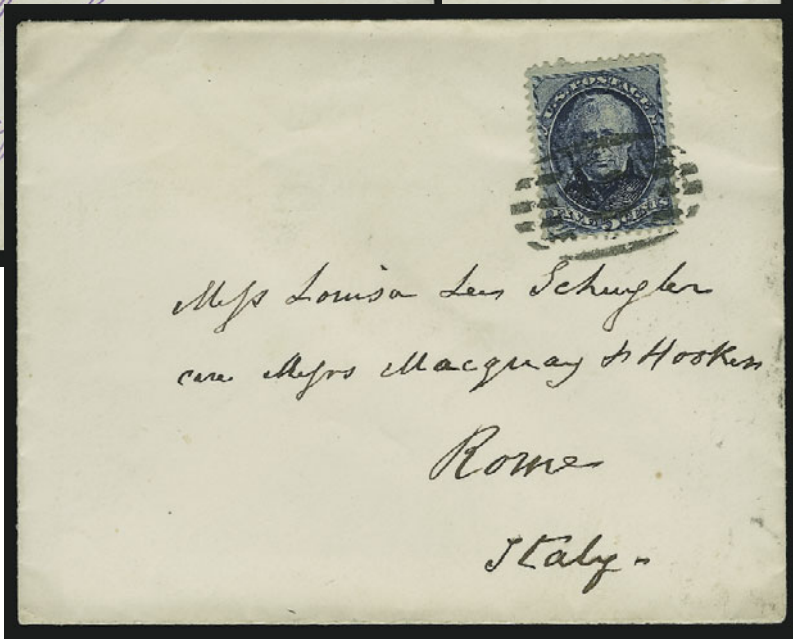 U.S. POSTAGE
FIVE 5 CENTS
Miss Louisa Lee Schuyler
care Messrs Macquay & Hooker
Rome
Italy.